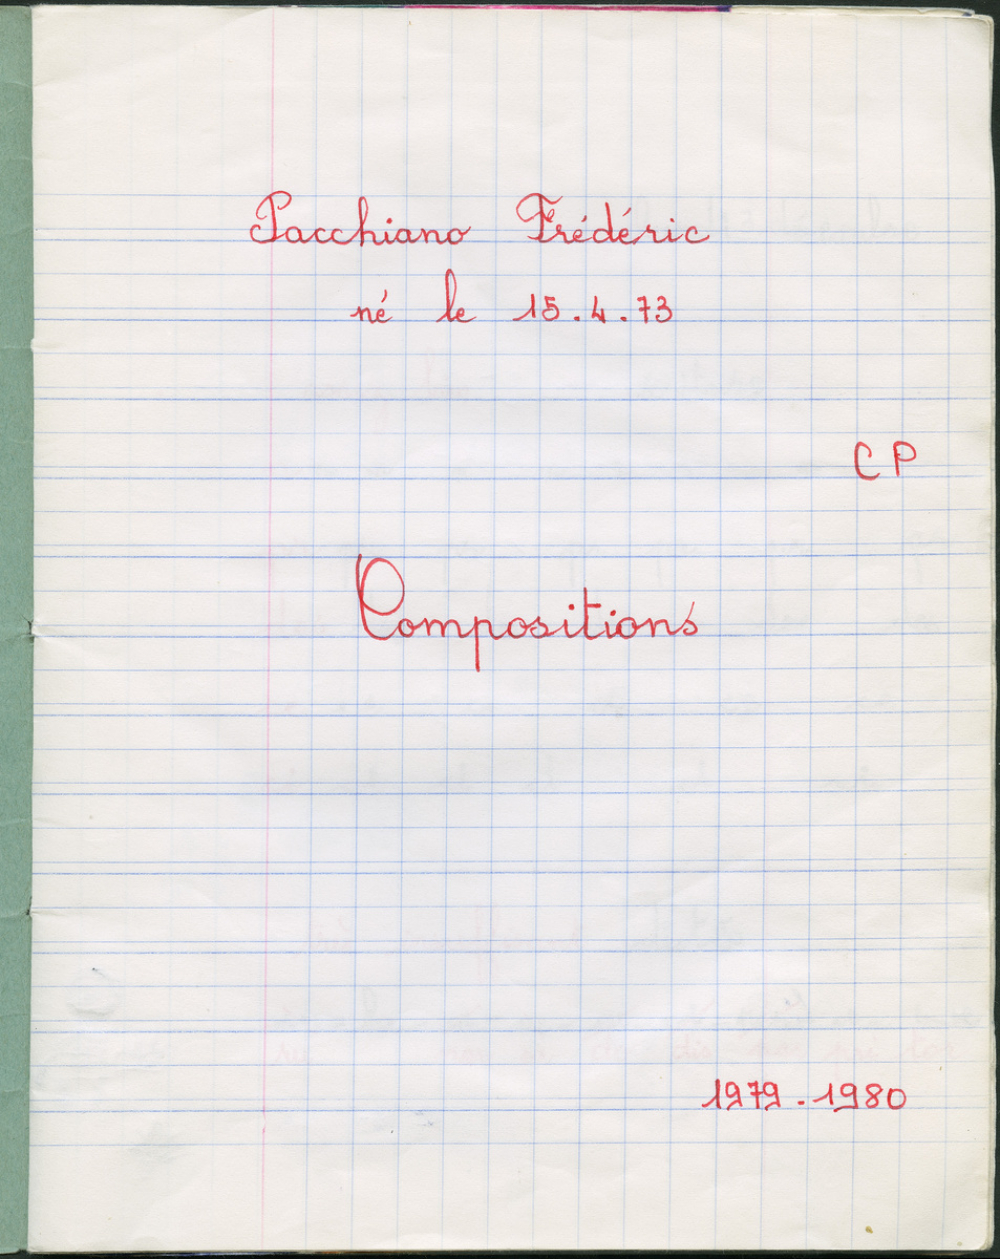 Pacchiano Frédéric
né le 15.4.73
CP
Compositions
1979-1980